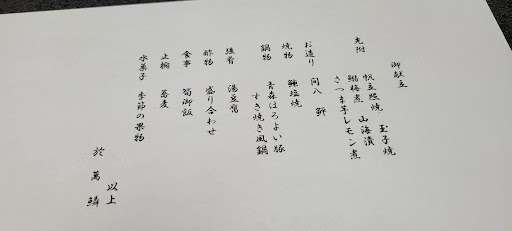 御献立
先附
帆立照焼 玉子焼
鰯梅煮 山海漬
さつま芋レモン煮
お造り 間八 鮃
焼物 塩焼
鍋物 青森ほろよい豚
すき焼き風鍋
強肴 湯豆腐
酢物 盛り合わせ
食事 筍御飯
止椀 蕎麦
水菓子 季節の果物
以上
於 萬鱗